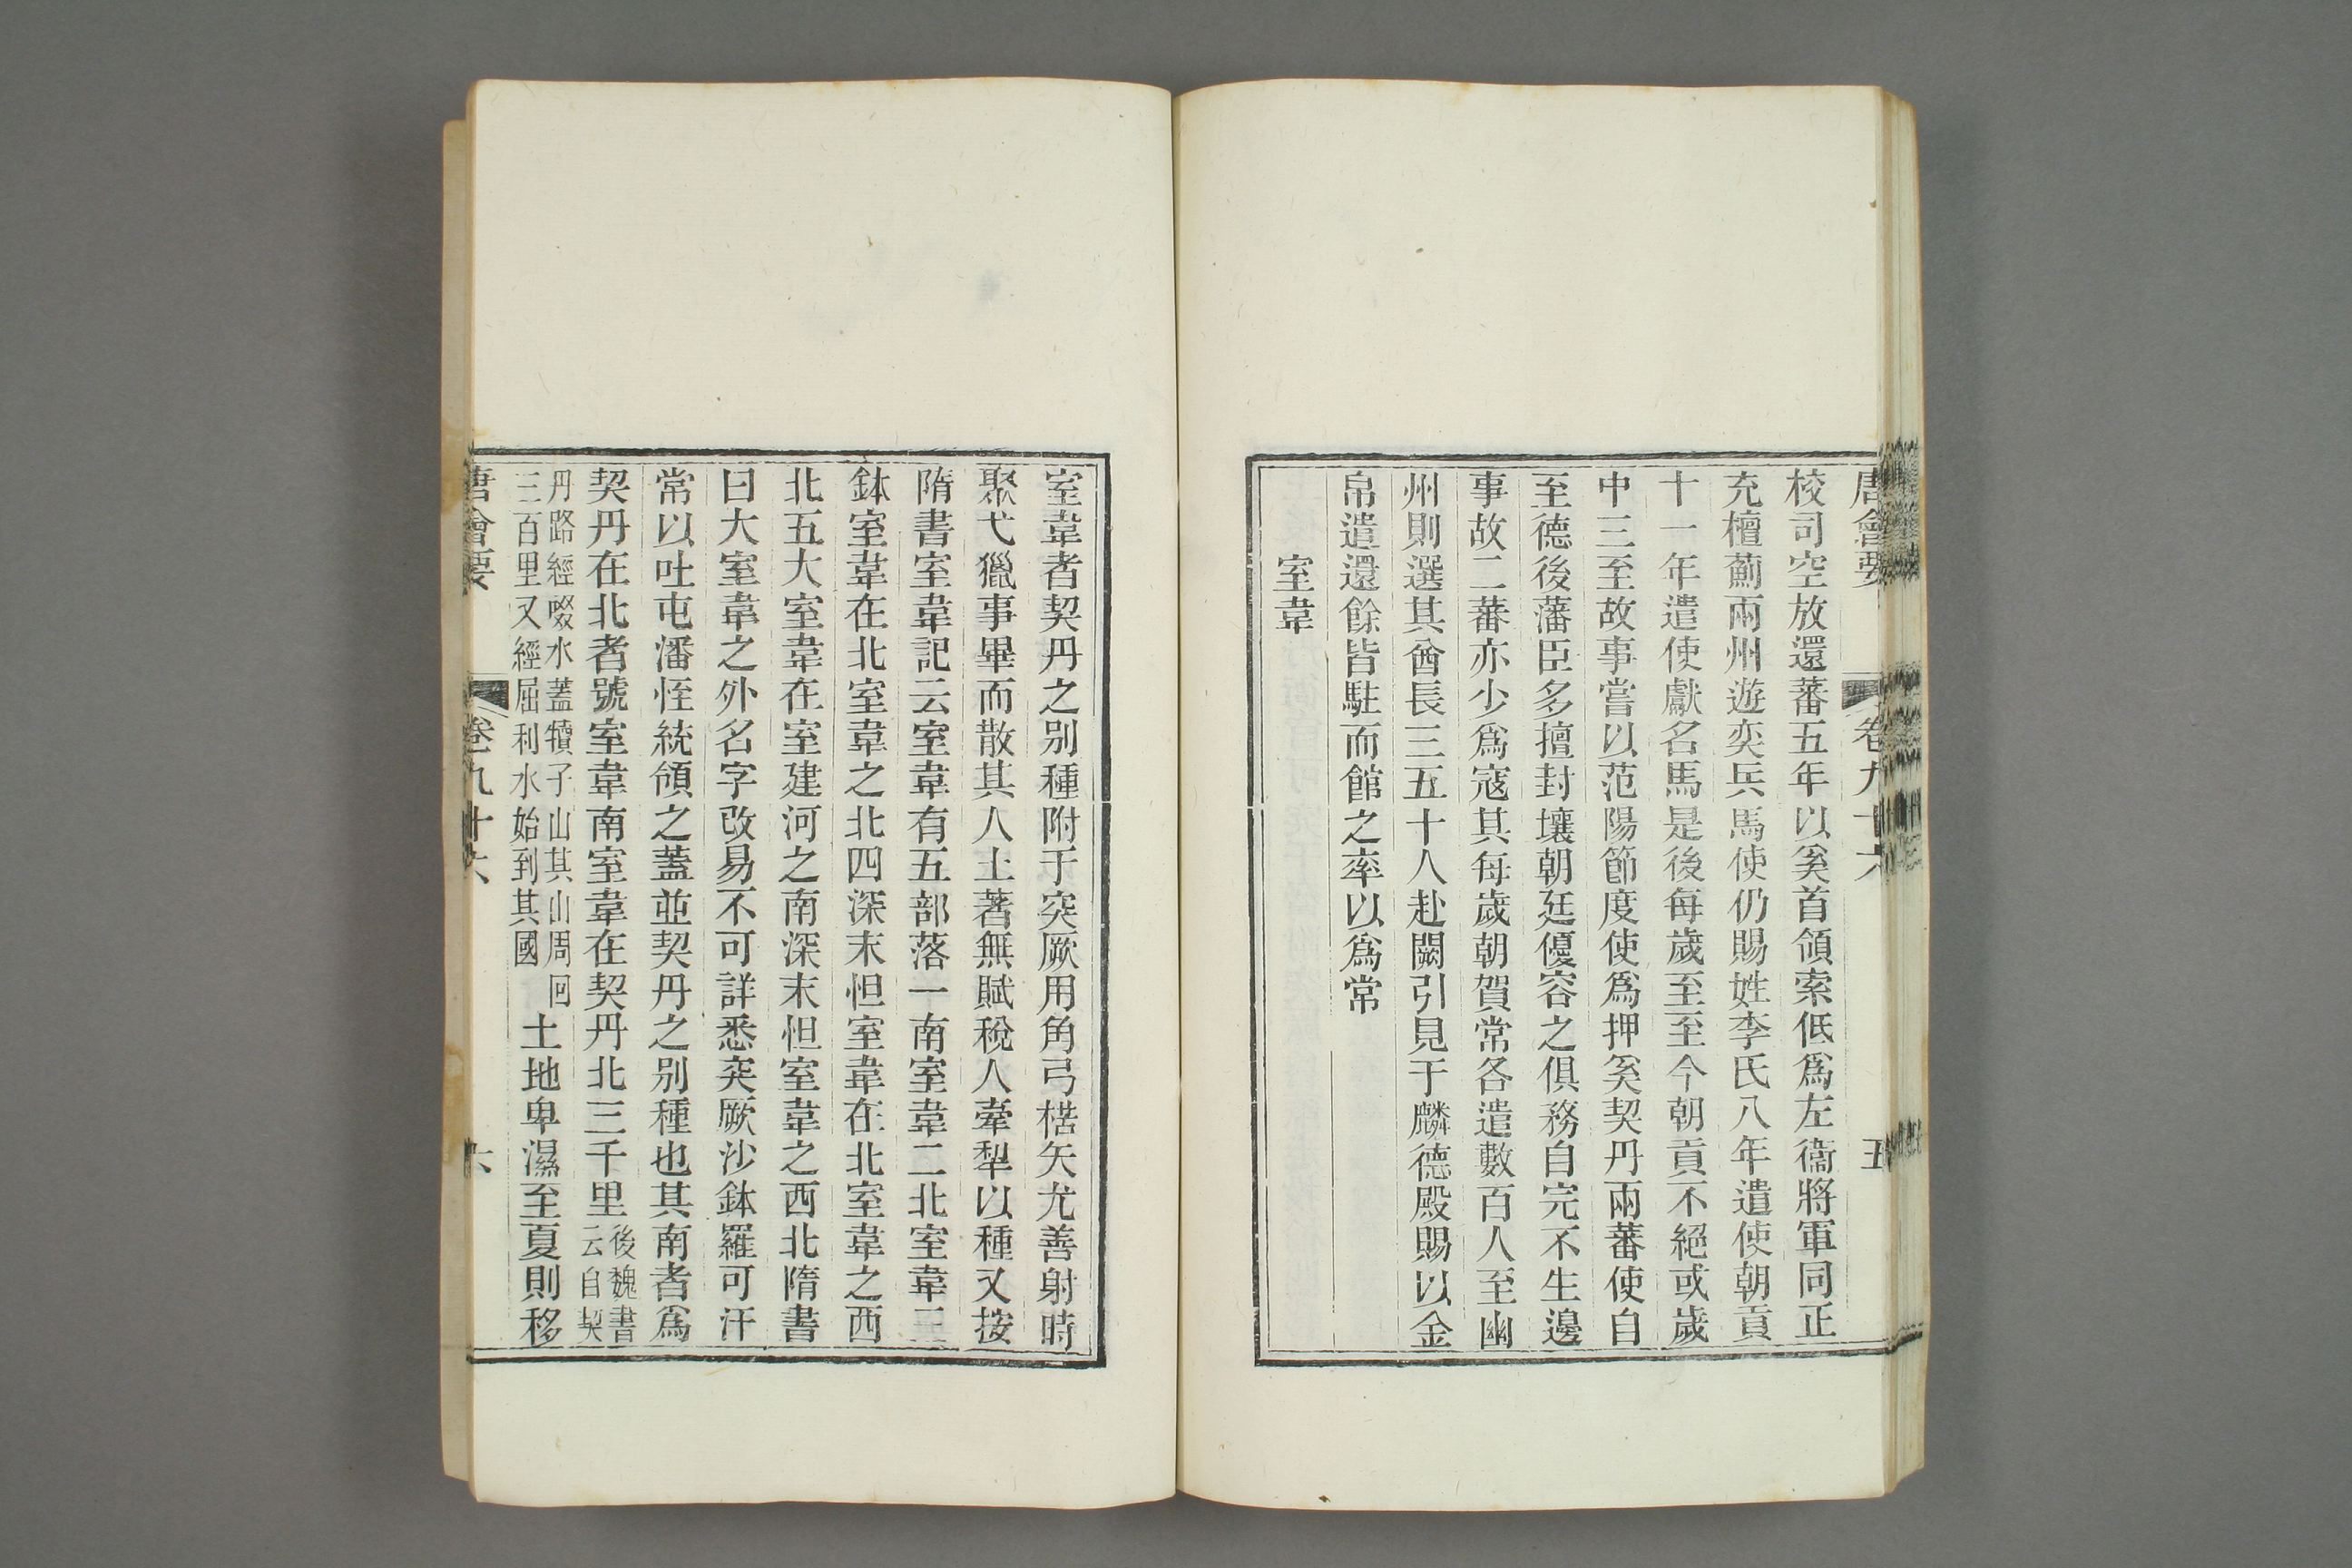 唐會要 卷九十六 五
校司空放還蕃五年以奚首領索低爲左衞將軍同正
充檀薊兩州遊奕兵馬使仍賜姓李氏八年遣使朝貢
十一年遣使獻名馬是後每歲至至今朝貢不絕或歲
中三至故事嘗以范陽節度使爲押奚契丹兩蕃使自
至德後藩臣多擅封壤朝廷優容之俱務自完不生邊
事故二蕃亦少爲寇其每歲朝賀常各遣數百人至幽
州則選其酋長三五十人赴闕引見于麟德殿賜以金
帛遣還餘皆駐而館之率以爲常
室韋
室韋者契丹之别種附于突厥用角弓楛矢尤善射時
聚弋獵事畢而散其人土著無賦稅人牽犁以種又按
隋書室韋記云室韋有五部落一南室韋二北室韋三
鉢室韋在北室韋之北四深末怛室韋在北室韋之西
北五大室韋在室建河之南深末怛室韋之西北隋書
曰大室韋之外名字改易不可詳悉突厥沙鉢羅可汗
常以吐屯潘恎統領之蓋並契丹之别種也其南者爲
契丹在北者號室韋南室韋在契丹北三千里後魏書云自契
丹路經啜水蓋犢子山其山周回三百里又經屈利水始到其國土地卑濕至夏則移
唐會要 卷九十六 六